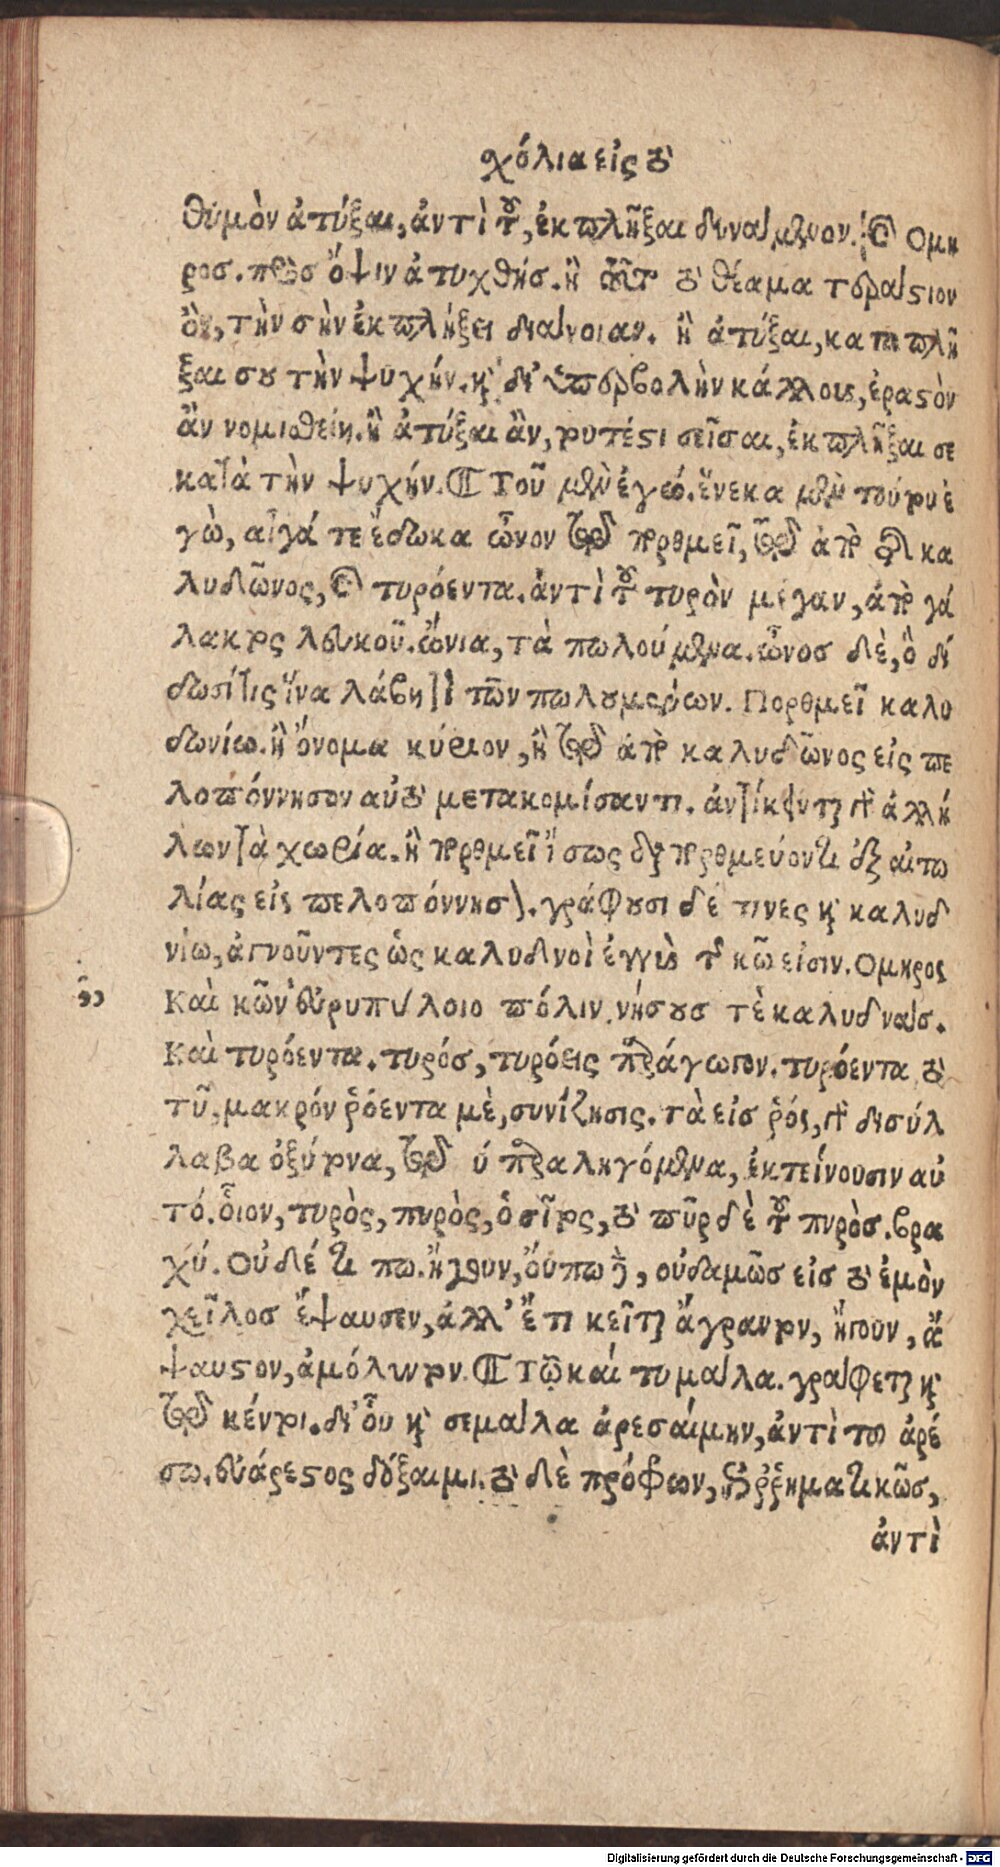 χόλια εἰς τὸ
θυμὸν ἀτύξαι, ἀντὶ τοῦ, ἐκπλῆξαι δυνάμενον. Ομη
ρος. πρὸσ ὄψιν ἀτυχθήσ. ἢ τὸ θέαμα τεράστιον
ὂν, τὴν σὴν ἐκπλήξει διάνοιαν. ἢ ἀτύξαι, καταπλῆ
ξαι σου τὴν ψυχήν. καὶ δι' ὑπερβολὴν κάλλους, ἐραστὸν
ἂν νομισθείη. ἢ ἀτύξαι ἂν, τουτέστι σεῖσαι, ἐκπλῆξαι σε
κατὰ τὴν ψυχήν. ¶ Τοῦ μὲν ἐγώ. ἕνεκα μὲν τούτου ἐ
γὼ, αἶγά τε ἔδωκα ὦνον τῷ πορθμεῖ, τῷ ἀπὸ τῆς κα
λυδῶνος, καὶ τυρόεντα. ἀντὶ τοῦ τυρὸν μέγαν, ἀπὸ γά
λακτος λευκοῦ. ὤνια, τὰ πωλούμενα. ὦνοσ δὲ, ὃ δί
δωσί τις ἵνα λάβῃ τὶ τῶν πωλουμένων. Πορθμεῖ καλυ
δωνίῳ. ἢ ὄνομα κύριον, ἢ τῷ ἀπὸ καλυδῶνος εἰς πε
λοπόννησον αὐτὸ μετακομίσαντι. ἀντίκεινται γὰρ ἀλλή
λων τὰ χωρία. ἢ πορθμεῖ ἴσως τῷ πορθμεύοντι ἐξ αἰτω
λίας εἰς πελοπόννησον. γράφουσι δέ τινες καὶ καλυδ
νίῳ, ἀγνοοῦντες ὡς καλυδνοὶ ἐγγὺς τῆς κῶ εἰσιν. Ομηρος
Καὶ κῶν εὐρυπύλοιο πόλιν. νήσουσ τὲ καλυδνάσ.
Καὶ τυρόεντα. τυρόσ, τυρόεις παράγωγον. τυρόεντα τὸ
τῦ, μακρόν ῥόεντα μὲ, συνίζησις. τὰ εἰσ ῥός, γὰρ δισύλ
λαβα ὀξύτονα, τῷ ὐ παραληγόμενα, ἐκτείνουσιν αὐ
τό. οἷον, τυρὸς, πυρὸς, ὁ σῖτος, τὸ πῦρ δὲ τοῦ πυρὸσ. βρα
χύ. Οὐδέ τί πω. ἤγουν, οὔπω τὶ, οὐδαμῶσ εἰσ τὸ ἐμὸν
χεῖλοσ ἔψαυσεν, ἀλλ' ἔτι κεῖται ἄχραντον, ἤγουν, ἄ
ψαυστον, ἀμόλυντον. ¶ Τῷ καί τυ μάλα. γράφεται καὶ
τῷ κέντοι. δι' οὗ καὶ σε μάλα ἀρεσαίμην, ἀντὶ τοῦ ἀρέ
σω. εὐάρεστος δόξαιμι. τὸ δὲ πρόφρων, ἐπιρρηματικῶσ,
ἀντὶ